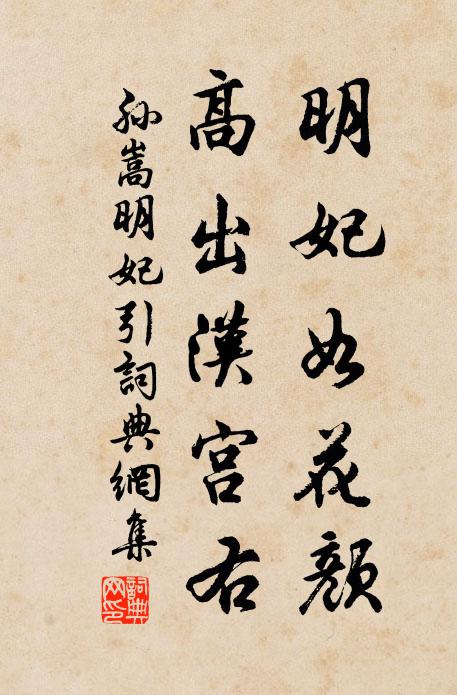 明妃如花顔
高出漢宮右
孫嵩明妃引詞典網集
詞典網印